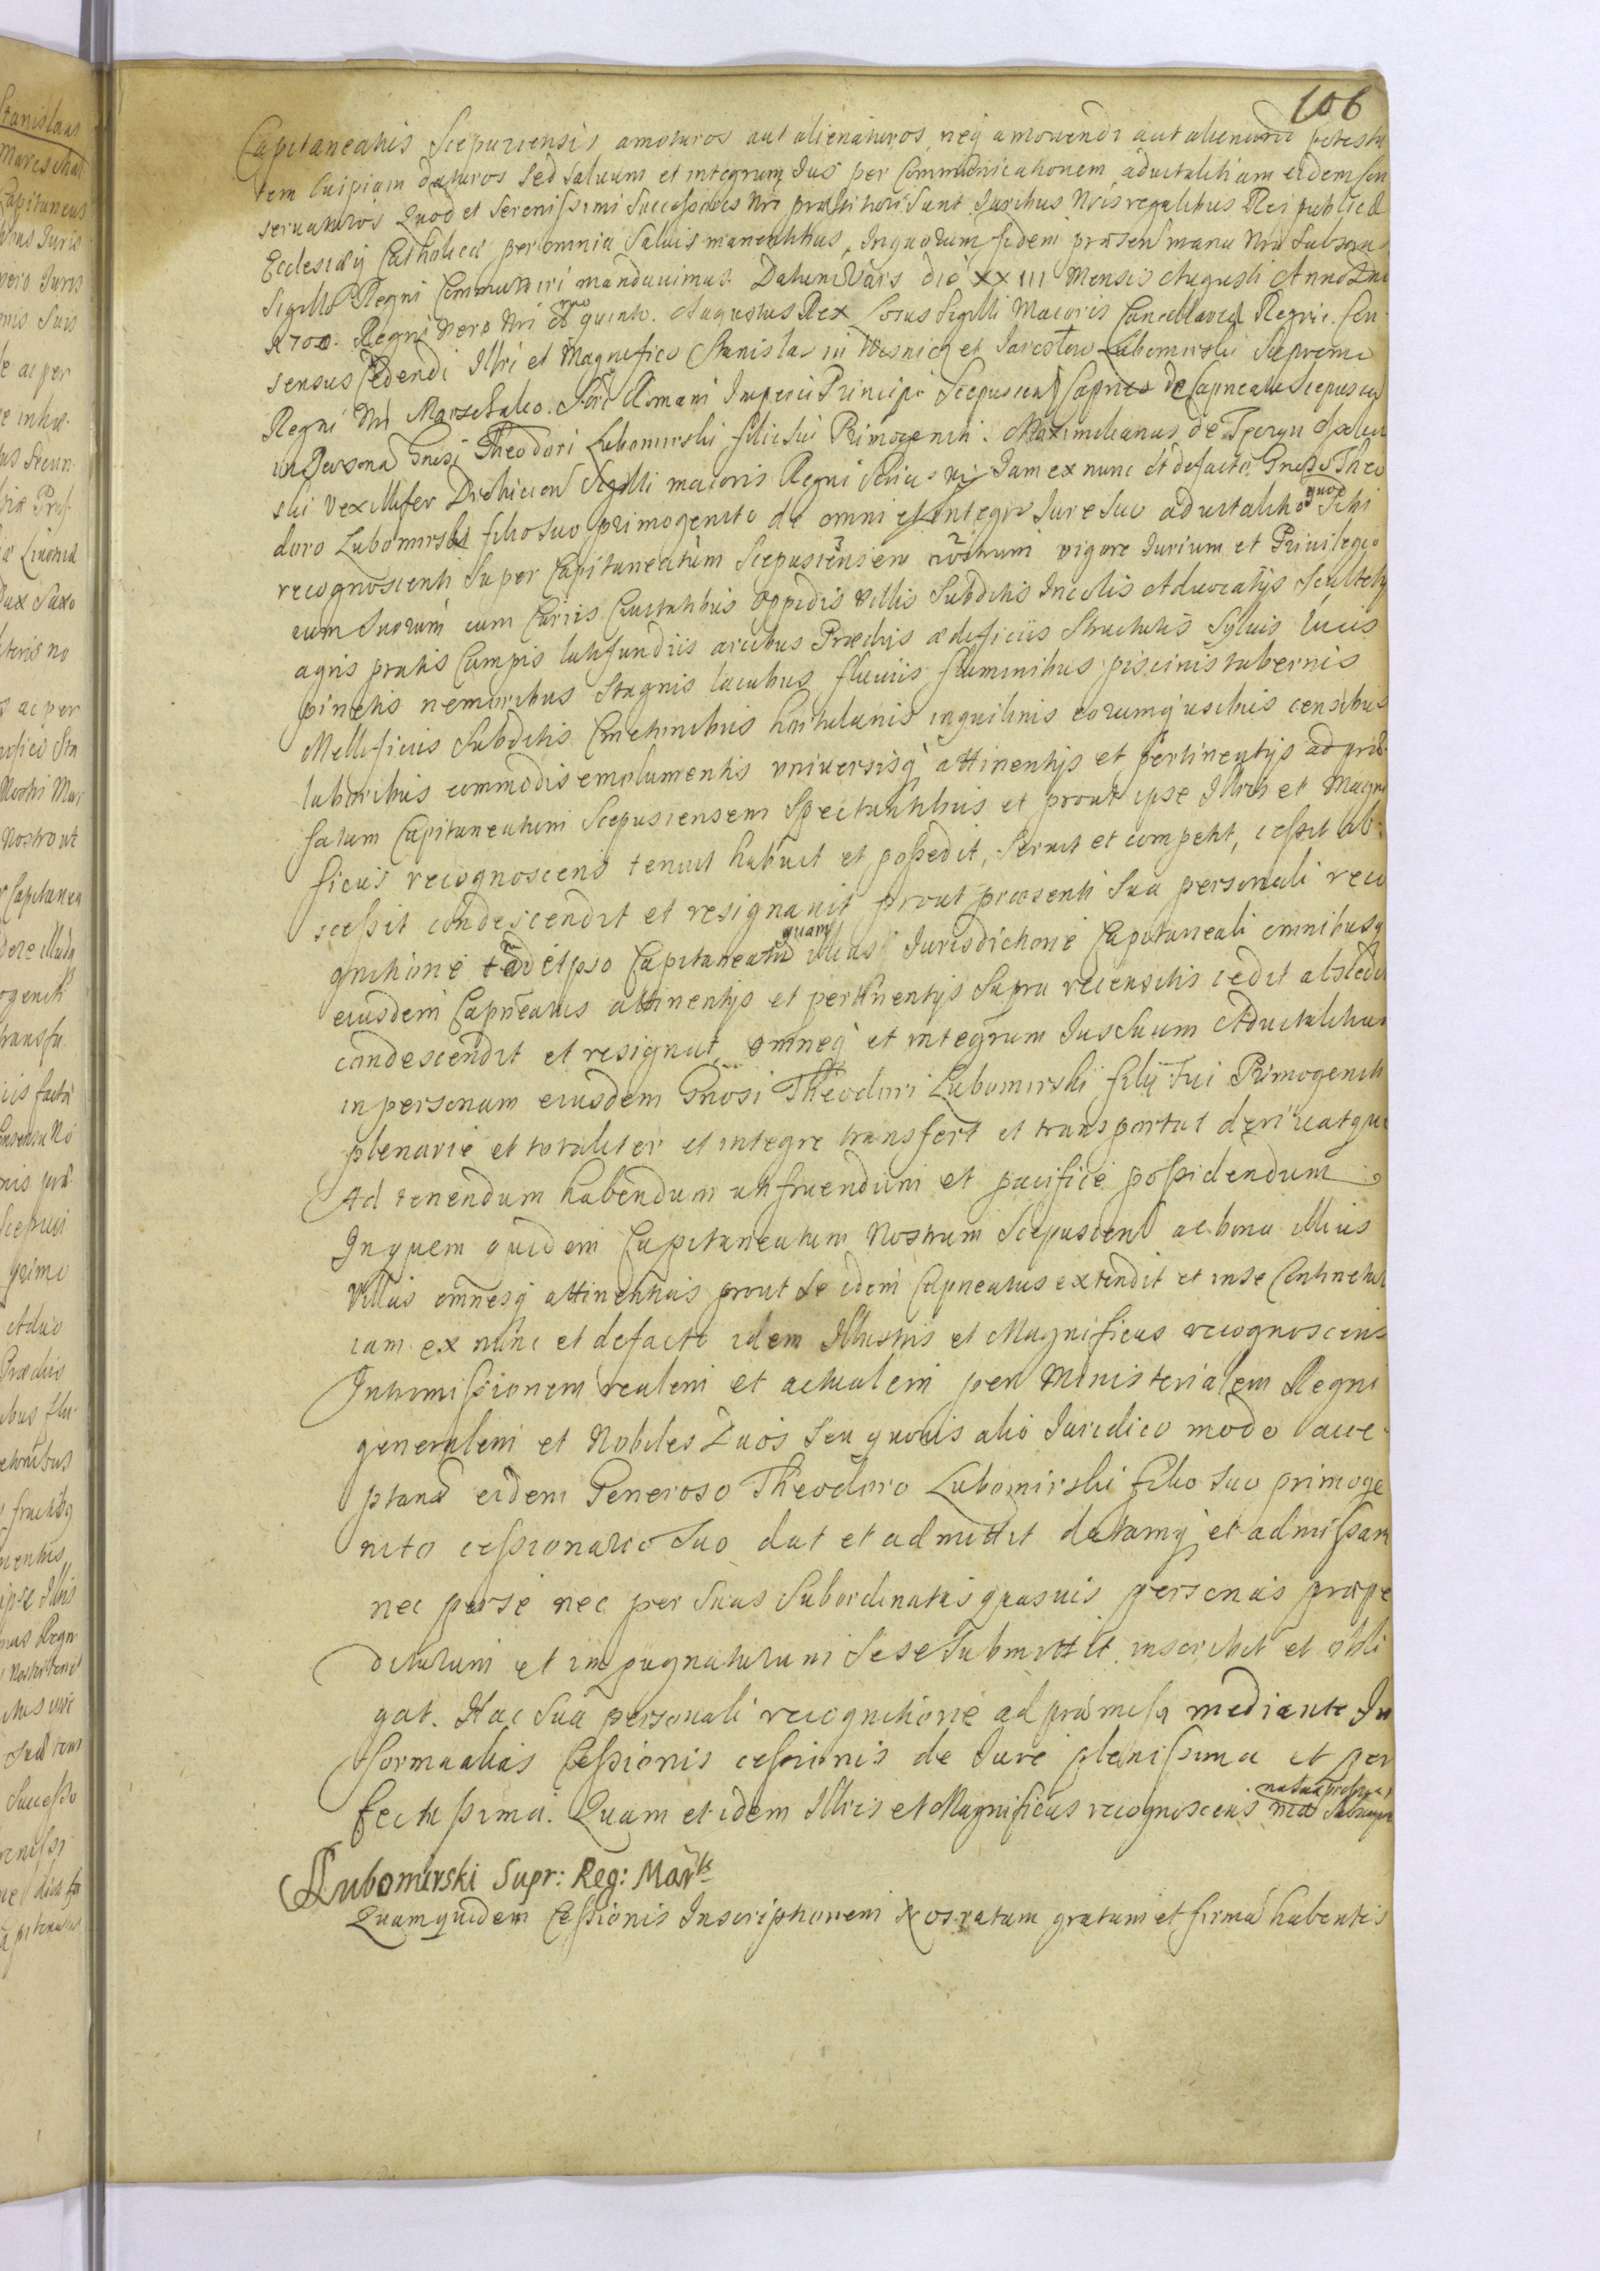 106
Capitaneatus Scepusiensis amoturos aut alienaturos, neq amovendi aut alienandi potesta
tem Cuipiam daturos Sed Salvum et integrum Jus per Communicationem advitalitiam eidem Con
servaturos Quod et Serenissimi Successores Nri præstituri Sunt. Juribus Nris regalibus Rei publicæ
Ecclesiæq Catholicæ per omnia Salvis manentibus, In quorum fidem præsen manu Nra Subscrip
Sigillo Regni Communiri mandavimus. Datum Vars die XXIII Mensis Augusti Anno Dni
1700. Regni Vero Nri quinto. Augustus Rex Locus Sigilli Maioris Cancellariæ Regni. Con
sensus Cedendi Illri et Magnifico Stanislao in Wisnicz et Jaroslaw Lubomirski Supremo
Regni Nri Marschalco. Romani Imperii Principi Scepusien Capneo de Capneatu Scepusien
in Personam Gnosi Theodori Lubomirski filii Sui Primogeniti. Maximilianus de
ski Vexillifer Drohicien Sigilli maioris Regni Jam ex nunc et de facto Gnoso Theo
doro Lubomirski filio Suo primogenito de omni et integro Jure Suo advitalitio quod Sibi
recognoscenti Super Capitaneatum Scepusiensem nostrum vigore Jurium et Privilegio
rum Suorum cum Curiis Civitatibus Oppidis Villis Subditis Incolis Advocatijs Scultetijs
agris pratis Campis latifundiis arcibus Prædijs ædificiis Structuris Sylvis lucis
pinetis nemoribus Stagnis lacubus fluviis fluminibus piscinis tabernis
Mellificiis Subditis Cmethonibus hortulanis inquilinis eorumq usibus censibus
laboribus commodis emolumentis universisq attinentijs et pertinentijs ad præ
fatum Capitaneatum Scepusiensem Spectantibus et prout ipse Illris et Magni
ficus recognoscens tenuit habuit et possedit, Servit et competit, cessit ab
scessit condescendit et resignavit prout præsenti Sua personali reco
gnitione de ipso Capitaneatu quam illius Jurisdictione Capitaneali omnibusq
eiusdem Capneatus attinentijs et pertinentijs Supra recensitis cedit abscedit
condescendit et resignat, omneq et integrum Jus Suum Advitalitium
in personam eiusdem Gnosi Theodori Lubomirski filij Sui Primogeniti
plenarie et totaliter et integre transfert et transportat derivatque
Ad tenendum habendum utifruendum et pacifice possidendum
In quem quidem Capitaneatum Nostrum Scepusien ac bona illius
Villas omnesq attinentias prout Se idem Capneatus extendit et in se Continetur
iam ex nunc et de facto idem Illustris et Magnificus recognoscens
Intromissionem realem et actualem per Ministerialem Regni
generalem et Nobiles Duos Seu quovis alio Juridico modo acce
ptand eidem Generoso Theodoro Lubomirski filio Suo primoge
nito cessionario Suo dat et admittit datamq et admissam
nec per se nec per Suas Subordinatas quasvis personas præpe
diturum et impugnaturum Sese Submittit inscribit et obli
gat. Hac Sua personali recognitione ad præmissa mediante In
forma alias Cessionis cessionis de Jure plenissima et per
fectissima. Quam et idem Illris et Magnificus recognoscens
Lubomirski Supr: Reg: Mar
Quamquidem Cessionis Inscriptionem Nos ratam gratam et firmam habentes